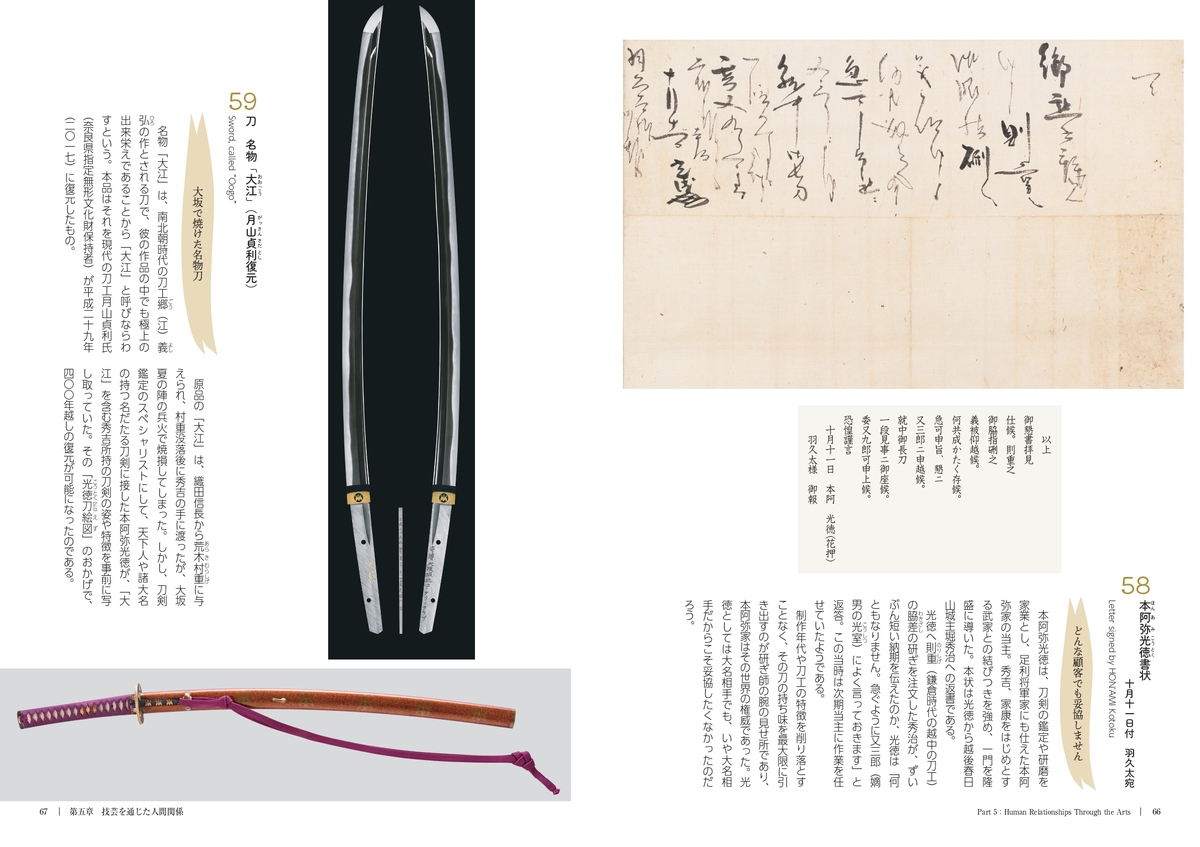 以上
御懇書拝見
仕候。則重之
御脇指砌之
義被仰越候。
何共成かたく存候。
急可申旨、懇ニ
又三郎ニ申越候。
就中御長刀
一段見事ニ御座候。
委又九郎可申上候。
恐惶謹言
十月十一日 本阿 光徳(花押)
羽久太様 御報
58
本阿弥光徳書状 十月十一日付 羽久太宛
ほんあみこうとく
Letter signed by HON'AMI Kotoku
どんな顧客でも妥協しません
本阿弥光徳は、刀剣の鑑定や研磨を
家業とし、足利将軍家にも仕えた本阿
弥家の当主。秀吉、家康をはじめとす
る武家との結びつきを強め、一門を隆
盛に導いた。本状は光徳から越後春日
山城主堀秀治への返書である。
光徳へ則重(鎌倉時代の越中の刀工)
の脇差の研ぎを注文した秀治が、ずい
ぶん短い納期を伝えたのか、光徳は「何
ともなりません。急ぐように又三郎(嫡
男の光室)によく言っておきます」と
返答。この当時は次期当主に作業を任
せていたようである。
制作年代や刀工の特徴を削り落とす
ことなく、その刀の持ち味を最大限に引
き出すのが研ぎ師の腕の見せ所であり、
本阿弥家はその世界の権威であった。光
徳としては大名相手でも、いや大名相
手だからこそ妥協したくなかったのだ
ろう。
Part 5 : Human Relationships Through the Arts | 66
59
刀 名物「大江」(月山貞利復元)
おおごう がっさんさだとし
Sword, called "Oogo"
大坂で焼けた名物刀
名物「大江」は、南北朝時代の刀工郷(江)義
弘の作とされる刀で、彼の作品の中でも極上の
出来栄えであることから「大江」と呼びならわ
すという。本品はそれを現代の刀工月山貞利氏
(奈良県指定無形文化財保持者)が平成二十九年
(二〇一七)に復元したもの。
原品の「大江」は、織田信長から荒木村重に与
えられ、村重没落後に秀吉の手に渡ったが、大坂
夏の陣の兵火で焼損してしまった。しかし、刀剣
鑑定のスペシャリストにして、天下人や諸大名
の持つ名だたる刀剣に接した本阿弥光徳が、「大
江」を含む秀吉所持の刀剣の姿や特徴を事前に写
し取っていた。その「光徳刀絵図」のおかげで、
四〇〇年越しの復元が可能になったのである。
67 | 第五章 技芸を通じた人間関係